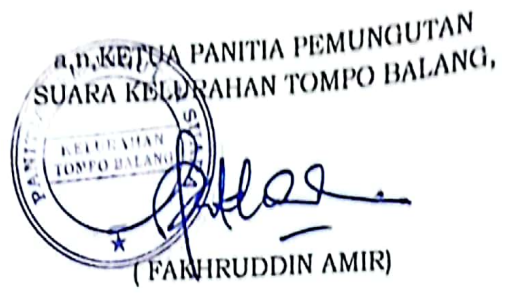 a,n,KETUA PANITIA PEMUNGUTAN
SUARA KELURAHAN TOMPO BALANG,
KELURAHAN
TOMPO BALANG
(FAKHRUDDIN AMIR)